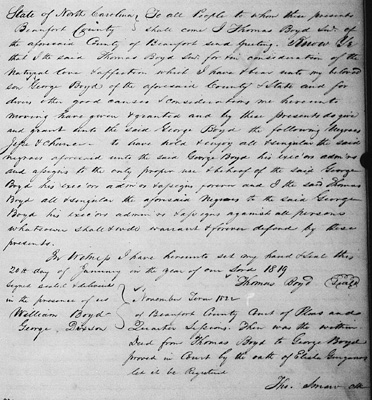 State of North Carolina } To all People to whom these presents
Beaufort County } shall come I Thomas Boyd Senr. of
the aforesaid County of Beaufort send greeting. Know Ye
that I the said Thomas Boyd Senr for & in consideration of the
Natural Love & affection which I have & bear unto my beloved
son George Boyd of the aforesaid County & State and for
divers other good causes & considerations me hereunto
moving have given & granted and by these presents do give
and grant unto the said George Boyd the following Negroes
Jeffe & Chance to have hold & enjoy all & singular the said
negroes aforesaid unto the said George Boyd his exec'ors adm'ors
and assigns to the only proper use & behoof of the said George
Boyd his exec'ors adm'ors & assigns forever and I the said Thomas
Boyd all & singular the aforesaid Negroes to the said George
Boyd his exec'ors adm'ors & assigns against all persons
whatsoever shall & will warrant & forever defend by these
presents.
In Witness I have hereunto set my hand & seal this
20th day of January in the year of our Lord 1819
Signed sealed & delivered Thomas Boyd (Seal)
in the presence of us } November Term 1822
William Boyd } Beaufort County Court of Pleas and
George Dixon Quarter Sessions. Then was the within
Deed from Thomas Boyd to George Boyd
proved in Court by the oath of
let it be Registered
Tho. Smaw